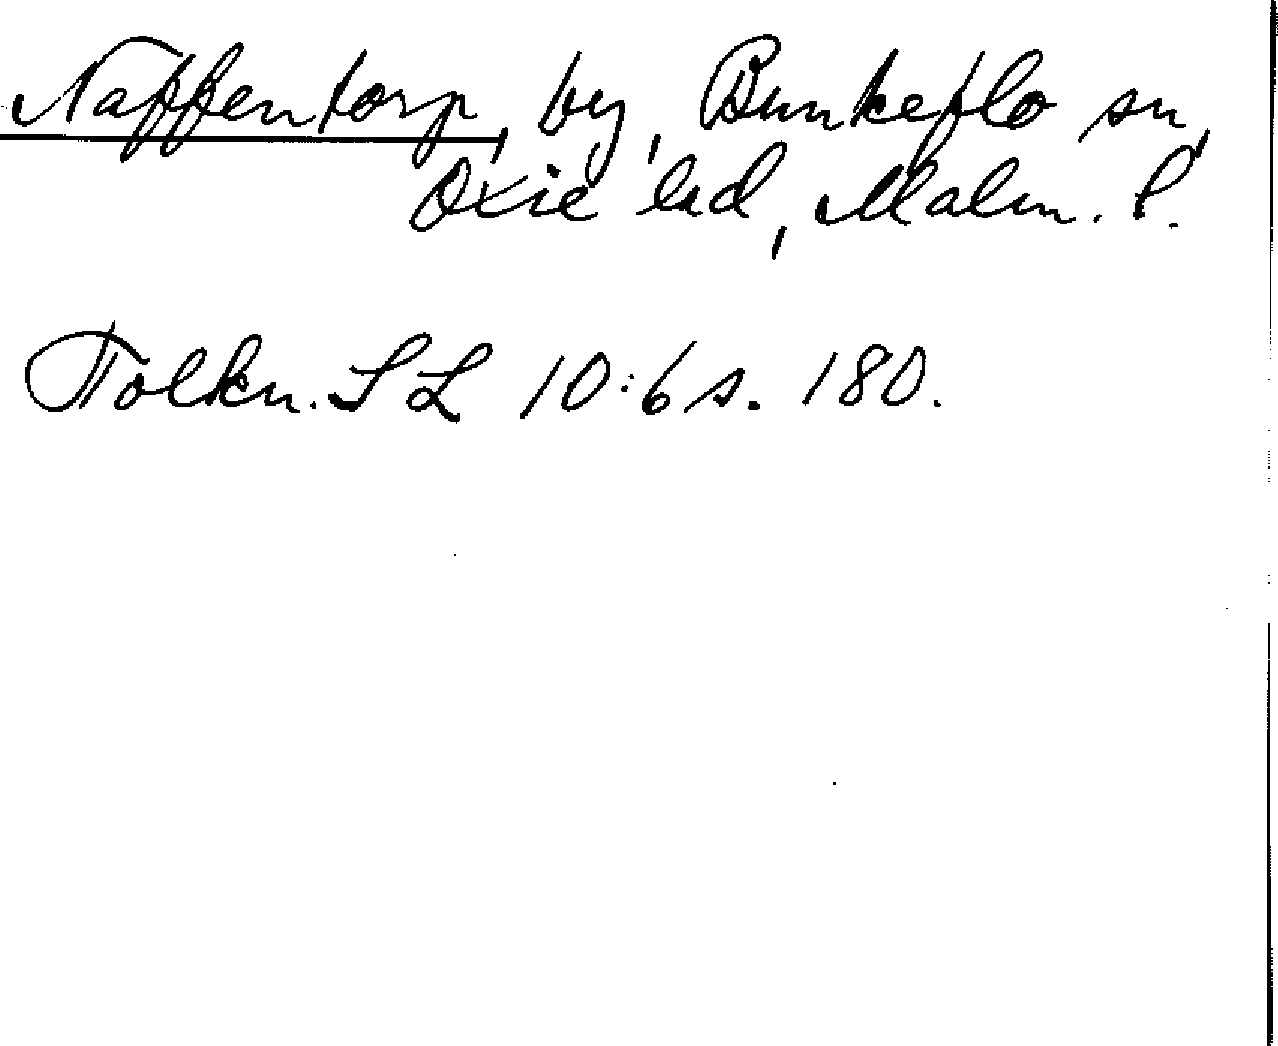 Naffentorp, by, Bunkeflo sn,
Oxie hd, Malm. l.
Tolkn. SL 10:6 s. 180.